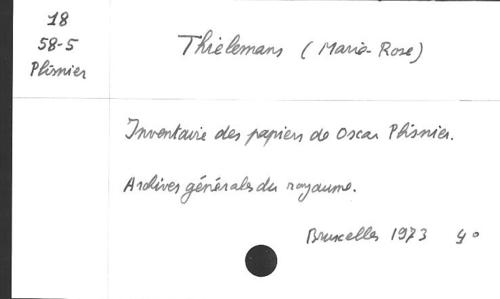 18
58-5
Plisnier
Thielemans (Marie-Rose)
Inventaire des papiers de Oscar Plisnier.
Archives générales du royaume.
Bruxelles 1973 4°